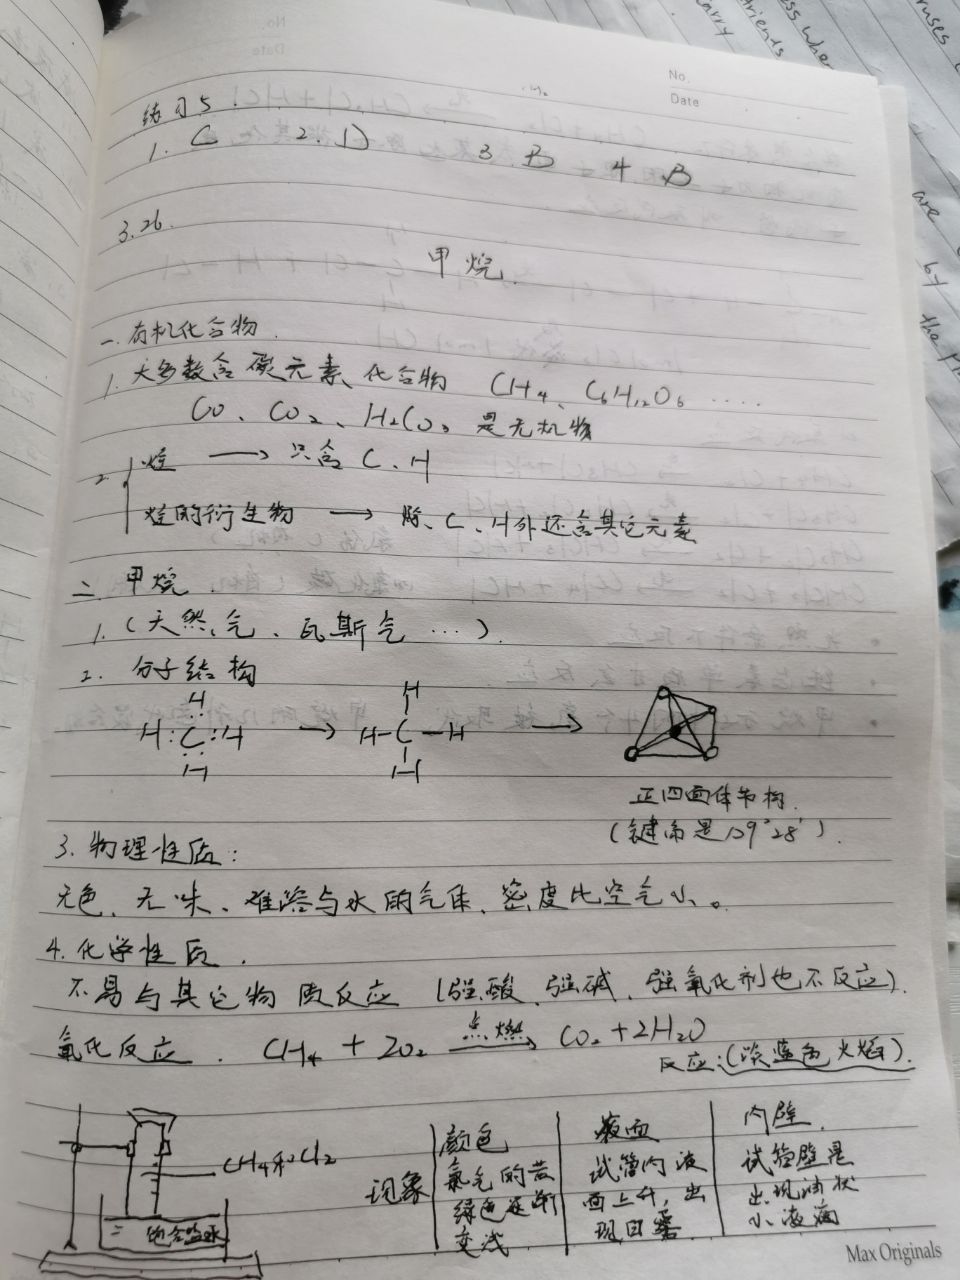 No.
Date
练习5
1. C 2. D 3 B 4. B
3.26.
甲烷.
一.有机化合物.
1. 大多数含碳元素、化合物 CH4、C6H12O6 ....
CO、CO2、H2CO3 是无机物
2. 烃 → 只含 C、H
烃的衍生物 → 除、C、H外还含其它元素
二.甲烷.
1. (天然气、瓦斯气 ...).
2. 分子结构
H
H:C:H → H-C-H →
H
正四面体结构.
(键角是109°28′).
3. 物理性质:
无色、无味、难溶与水的气体、密度比空气小。
4. 化学性质.
不易与其它物质反应 (强酸、强碱、强氧化剂也不反应).
氧化反应. CH4 + 2O2 点燃→ CO2+2H2O
反应:(淡蓝色火焰).
CH4和Cl2
饱合盐水
现象
颜色
氯气的黄
绿色逐渐
变浅
液面
试管内液
面上升,出
现白雾
内壁.
试管壁是
出现油状
小液滴
Max Originals